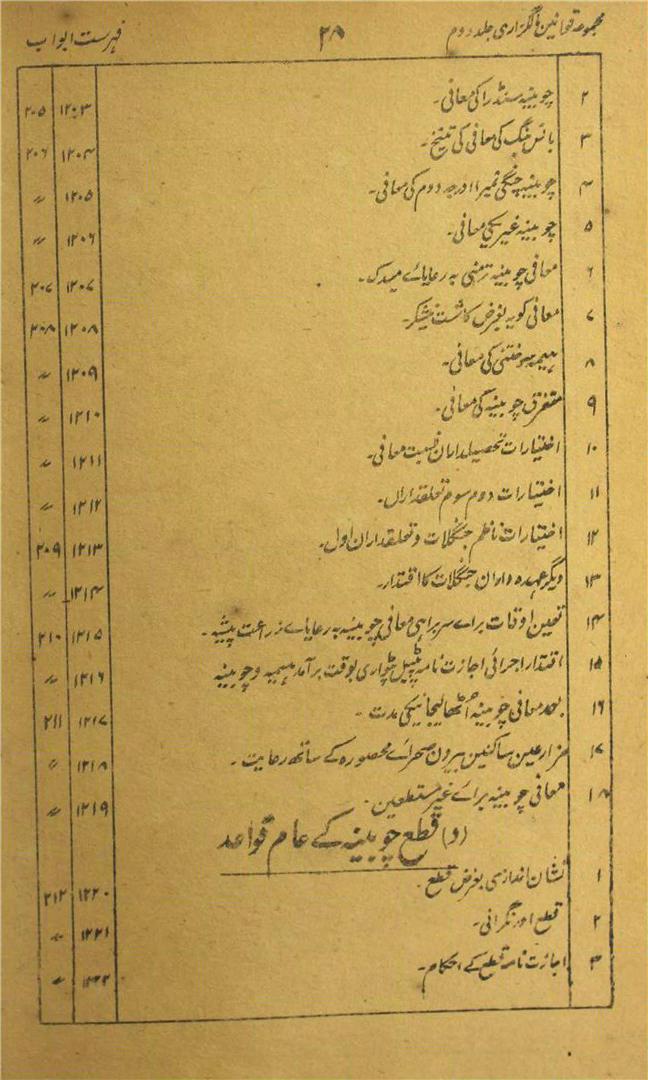 مجموعہ قوانین مالگزاری جلد دوم ۲۸ فہرست ابواب
۲ چوبینہ سنڈرا کی معافی۔ ۱۲۰۳ ۲۰۵
۳ بانس ہنگ کی معافی کی تنسیخ۔ ۱۲۰۴ ۲۰۶
۴ چوبینہ جنگلی نمبر ۱۱ درجہ دوم کی معافی۔ ۱۲۰۵ 〃
۵ چوبینہ غیر کی معافی۔ ۱۲۰۶ 〃
۶ معافی چوبینہ ترمنی بہ رعایائے میدک۔ ۱۲۰۷ ۲۰۷
۷ معافی کویہ بغرض کاشت نیشکر۔ ۱۲۰۸ ۲۰۸
۸ ہیمہ سوختنی کی معافی۔ ۱۲۰۹ 〃
۹ متفرق چوبینہ کی معافی۔ ۱۲۱۰ 〃
۱۰ اختیارات تحصیلداران نسبت معافی۔ ۱۲۱۱ 〃
۱۱ اختیارات دوم سوم تعلقداران۔ ۱۲۱۲ 〃
۱۲ اختیارات ناظم جنگلات و تعلقداران اول۔ ۱۲۱۳ ۲۰۹
۱۳ دیگر عہدہ داران جنگلات کا اقتدار۔ ۱۲۱۴ 〃
۱۴ تعین اوقات براے سربراہی معافی چوبینہ بہ رعایاے زراعت پیشہ۔ ۱۲۱۵ ۲۱۰
۱۵ اقتدار اجرائی اجازت نامہ پٹیل پٹواری بوقت برآمد ہیمہ و چوبینہ ۱۲۱۶ 〃
۱۶ بعد معافی چوبینہ اُٹھا لیجانیکی مدت۔ ۱۲۱۷ ۲۱۱
۱۷ مزارعین ساکنین بیرون صحرائے محصورہ کے ساتھ رعایت۔ ۱۲۱۸ 〃
۱۸ معافی چوبینہ برائے غیر مستطعین۔ ۱۲۱۹ 〃
(د) قطع چوبینہ کے عام قواعد
۱ نشان اندازی بغرض قطع۔ ۱۲۲۰ ۲۱۲
۲ قطع اور نگرانی۔ ۱۲۲۱ 〃
۳ اجازت نامہ قطع کے احکام۔ ۱۲۲۲ 〃